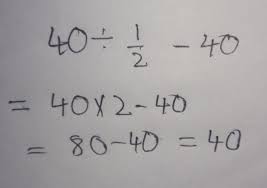 40 ÷ 1/2 - 40
= 40 × 2 - 40
= 80 - 40 = 40